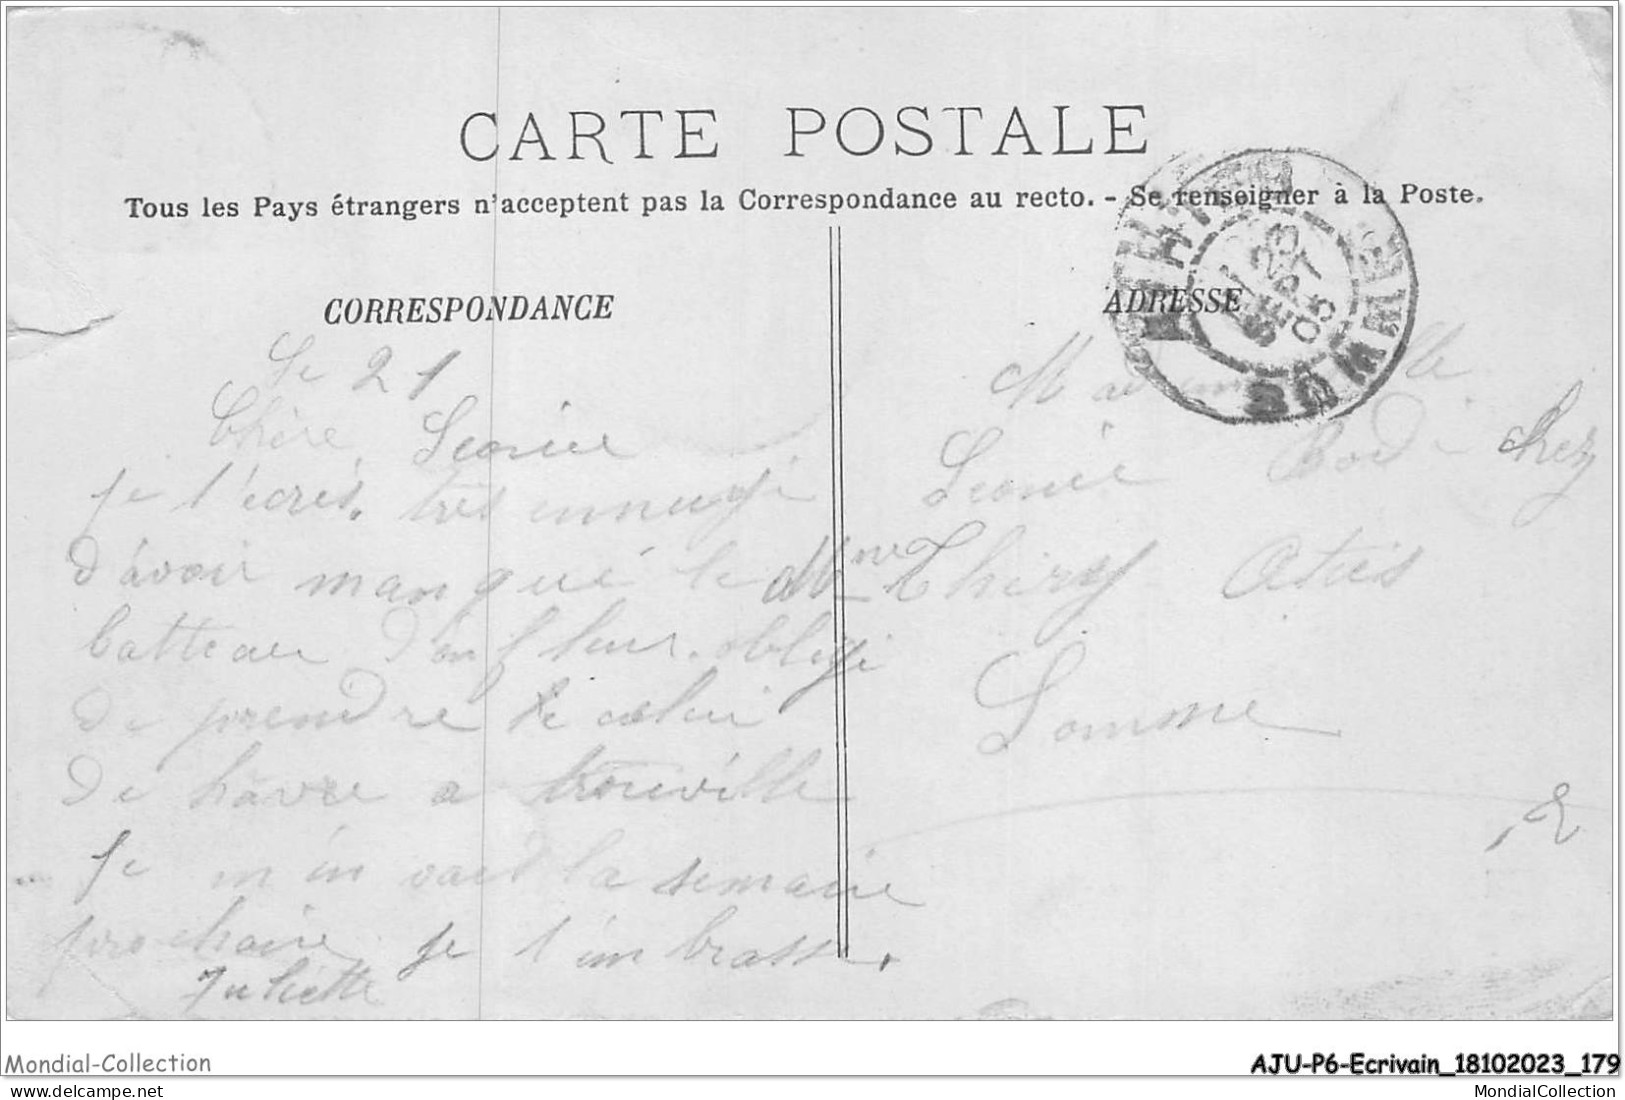 CARTE POSTALE
Tous les Pays étrangers n'acceptent pas la Correspondance au recto. - Se renseigner à la Poste.
CORRESPONDANCE
Le 21
Chère Leonie
je t'ecris. très ennuyé
d'avoir manqué le
batteau d'onfleur. obligé
de prendre le celui
de hâvre a trouville
Je m'en vais la semaine
prochaine je t'embrasse.
Juliette
ADRESSE
Mademoiselle
Leonie chez
Mme Thiry
Somme
SEPT 05
SOMME
Mondial-Collection
AJU-P6-Ecrivain_18102023_179
www.delcampe.net
MondialCollection